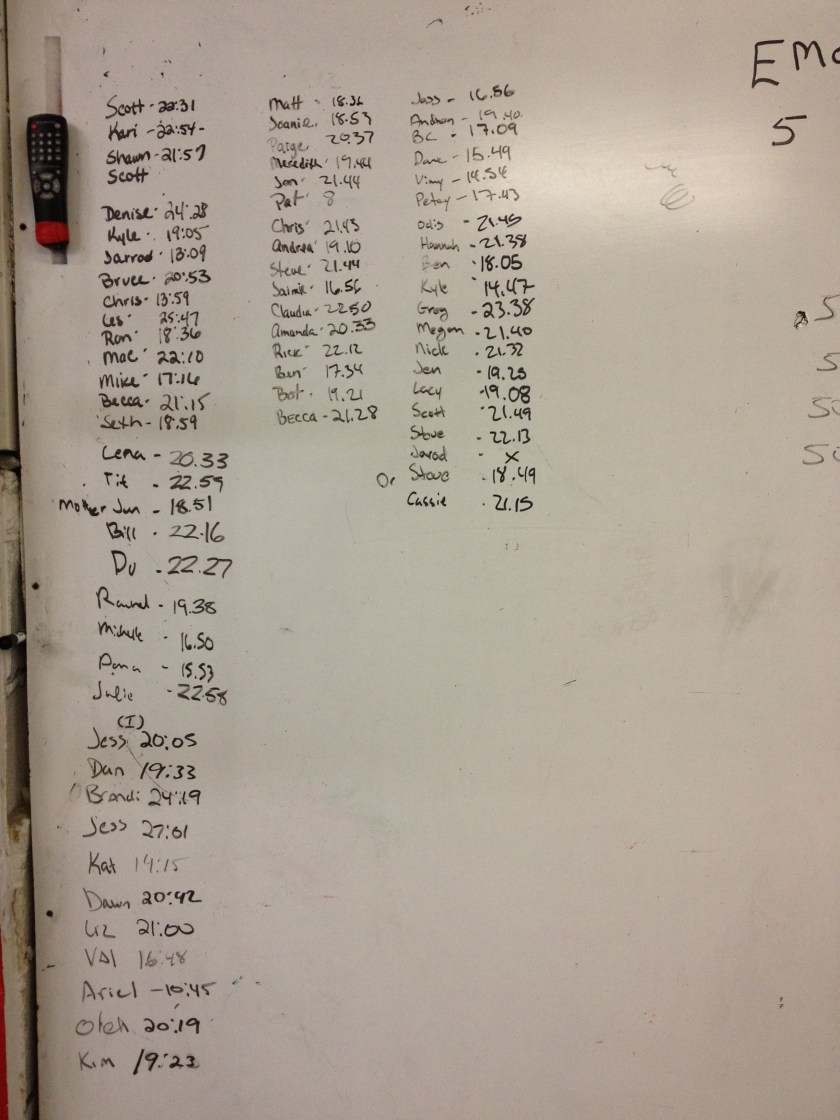 Scott - 22:31
Kari - 22:54 -
Shawn - 21:57
Scott
Denise - 24:28
Kyle - 19:05
Jarrod - 13:09
Bruce - 20:53
Chris - 13:59
Les - 25:47
Ron - 18:36
Mac - 22:10
Mike - 17:16
Becca - 21:15
Seth - 18:59
Lena - 20.33
Tif - 22.59
Mother Jun - 18.51
Bill - 22.16
Du - 22.27
- 19.38
Michyle - 16.50
Dana - 15.53
Julie - 22.58
(I)
Jess 20:05
Dan 19:33
Brandi 24:19
Jess 27:01
Kat 14:15
Dawn 20:42
Liz 21:00
Val 16:48
Ariel - 10:45
Oteh 20:19
Kim 19:23
Matt - 18.36
Joanie. 18.53
Paige 20.37
Meredith 19.44
Jon 21.44
Pat 8
Chris 21.43
Andrea 19.10
Steve 21.44
Jaimie 16.56
Claudia - 22.50
Amanda - 20.33
Rick 22.12
Ben 17.34
Bob 19.21
Becca - 21.28
Joss - 16.56
19.40
BC - 17.09
Dave - 15.49
Viny - 14.54
Petey - 17.43
Odis - 21.45
Hannah - 21.38
Ben - 18.05
Kyle 14.47
Greg - 23.38
Megan - 21.40
Nick . 21.32
Jen - 19.25
Lacy - 19.08
Scott - 21.49
Steve - 22.13
Jarod - x
Or Steve - 18.49
Cassie . 21.15
EMO
5
5
5
50
50